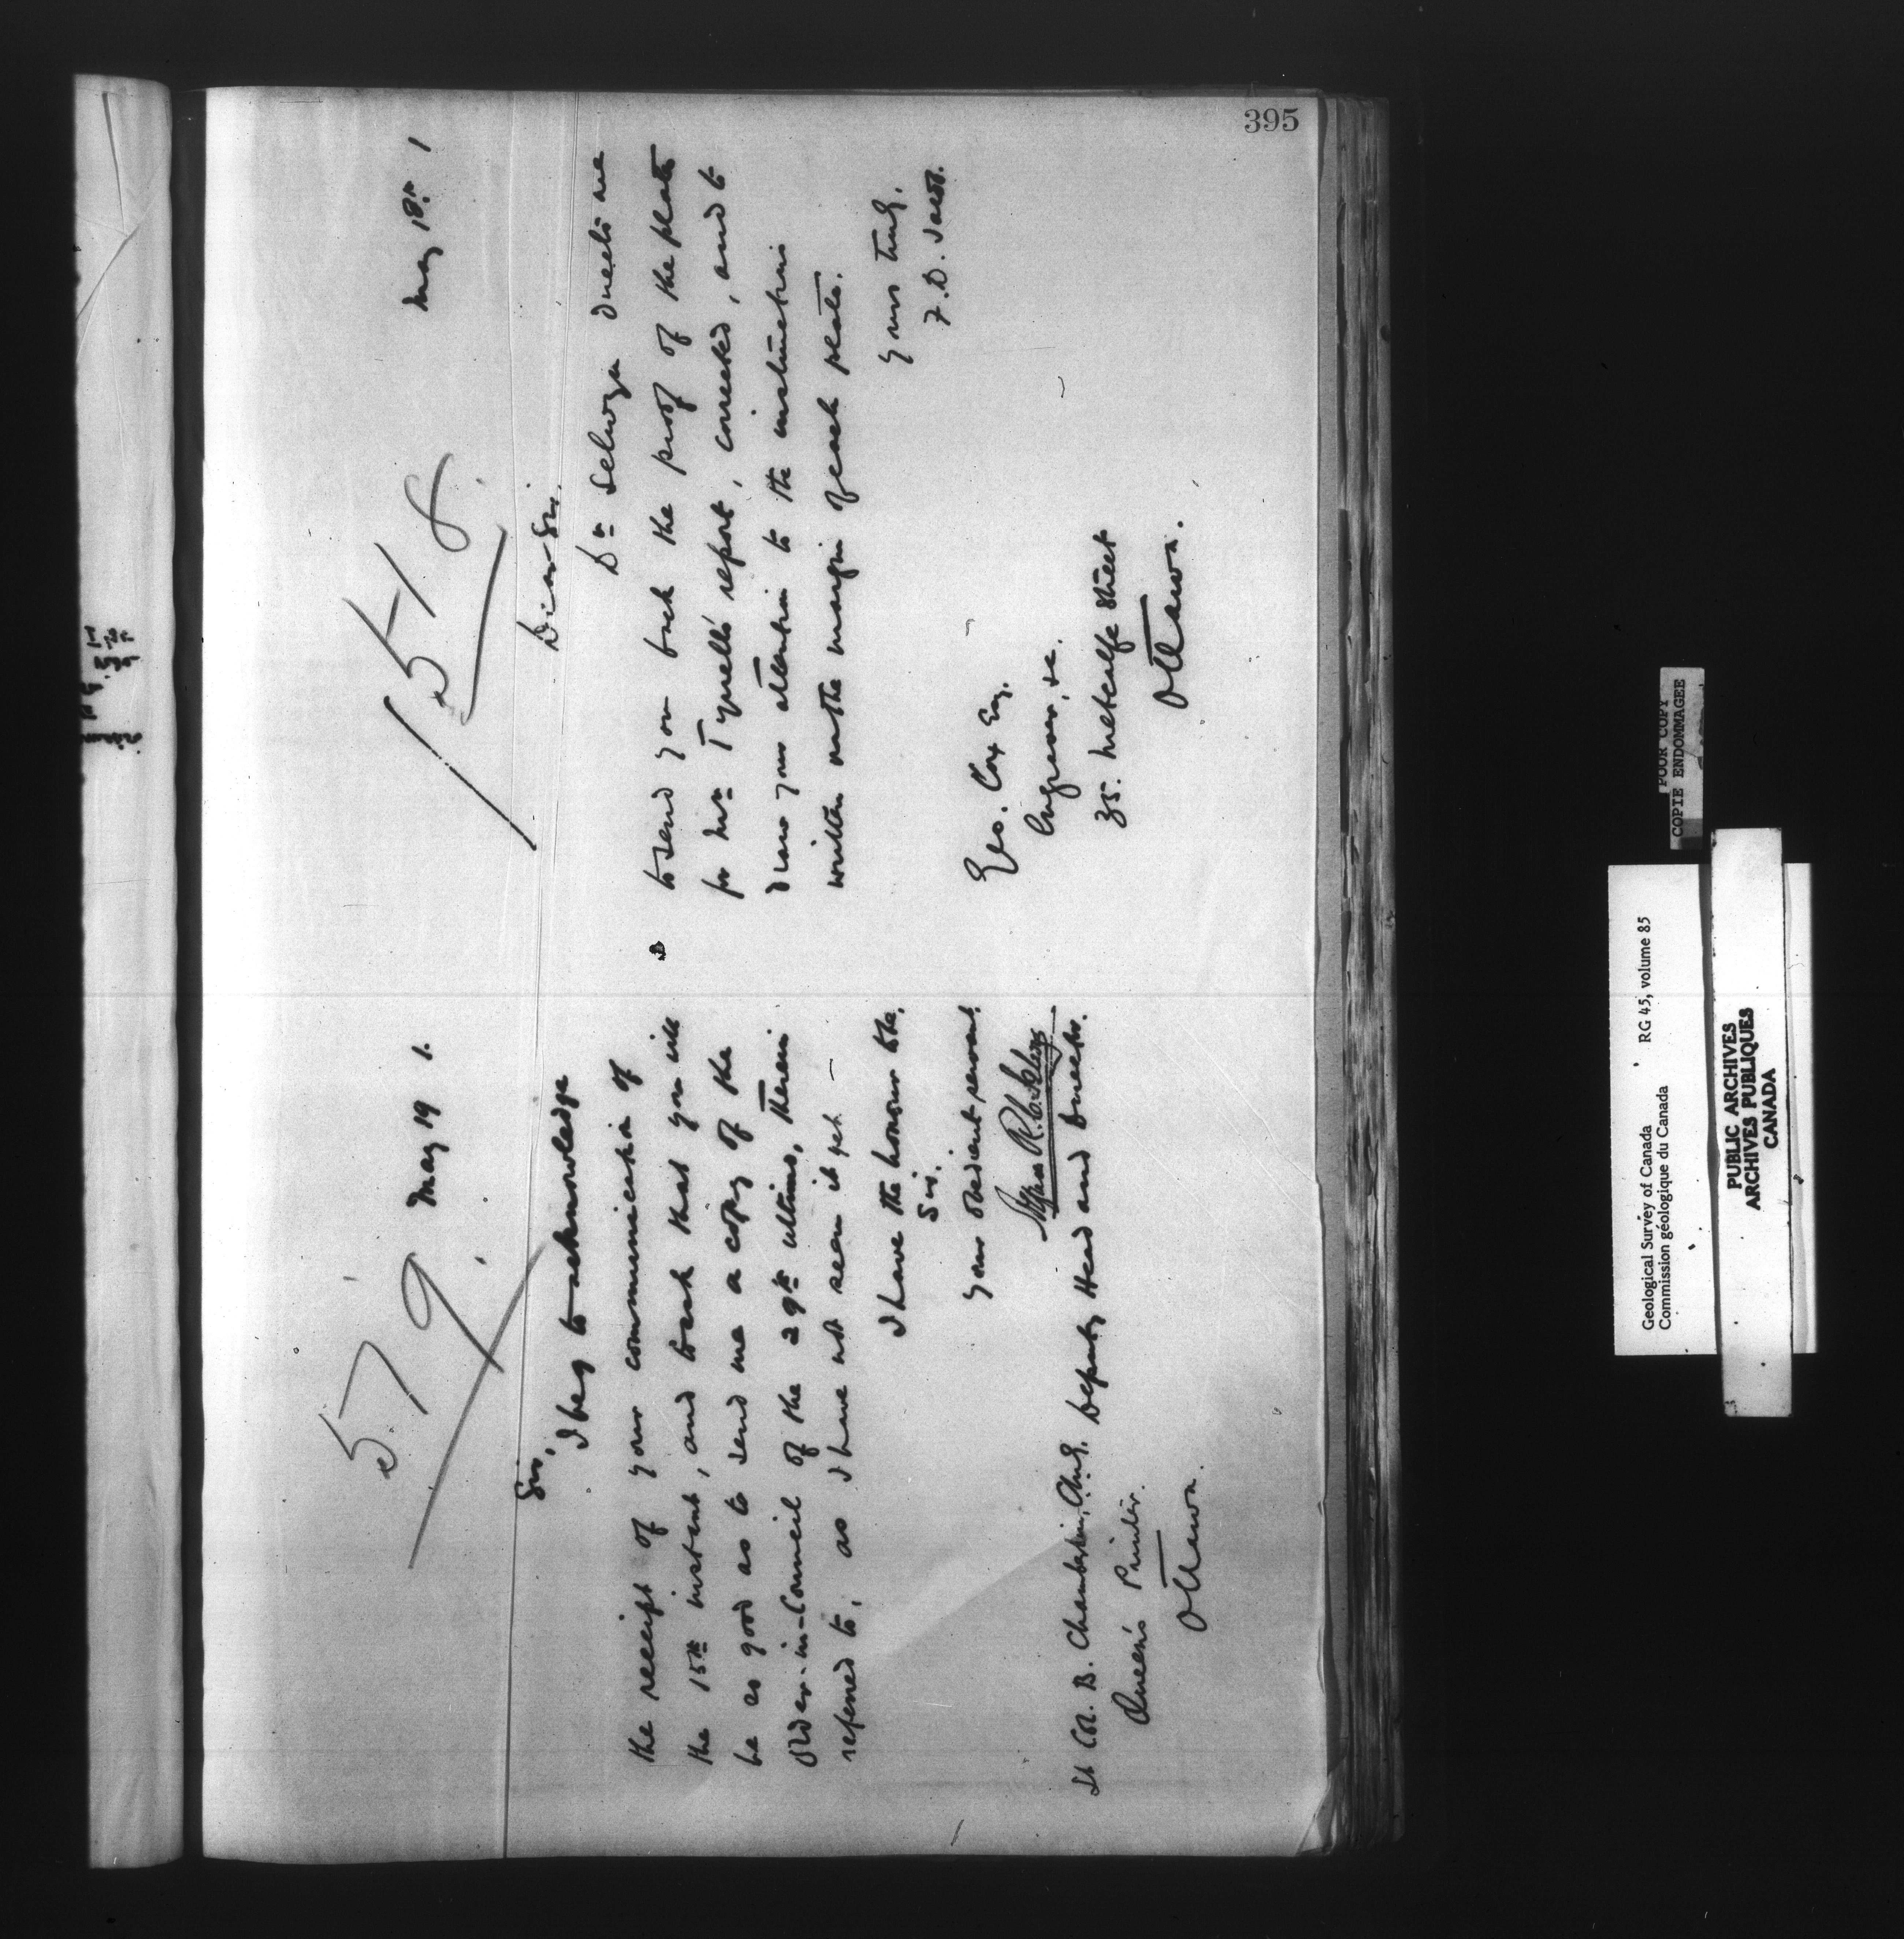 395
579
May 19 1.
Sir,
I beg to acknowledge
the receipt of your communication of
the 15th instant, and to ask that you will
be so good as to send me a copy of the
Order-in-Council of the 29th ultimo, therein
referred to, as I have not seen it yet.
I have the honour to be,
Sir,
Your obedient servant
Alfred R. C. Selwyn
Deputy Head and Director.
Lt Col. B. Chamberlin, C.M.G.
Queen's Printer.
Ottawa.
518
May 18th 1
Dear Sir.
Dr Selwyn directs me
to send you back the proof of the plates
for Mr Tyrrell's report, corrected, and to
draw your attention to the instructions
written on the margin of each plate.
Yours truly.
Geo. Cox Esq.
Engraver, &c.
35. Metcalfe Street
Ottawa.
Geological Survey of Canada RG 45, volume 85
Commission géologique du Canada
PUBLIC ARCHIVES
ARCHIVES PUBLIQUES
CANADA
POOR COPY
COPIE ENDOMMAGEE